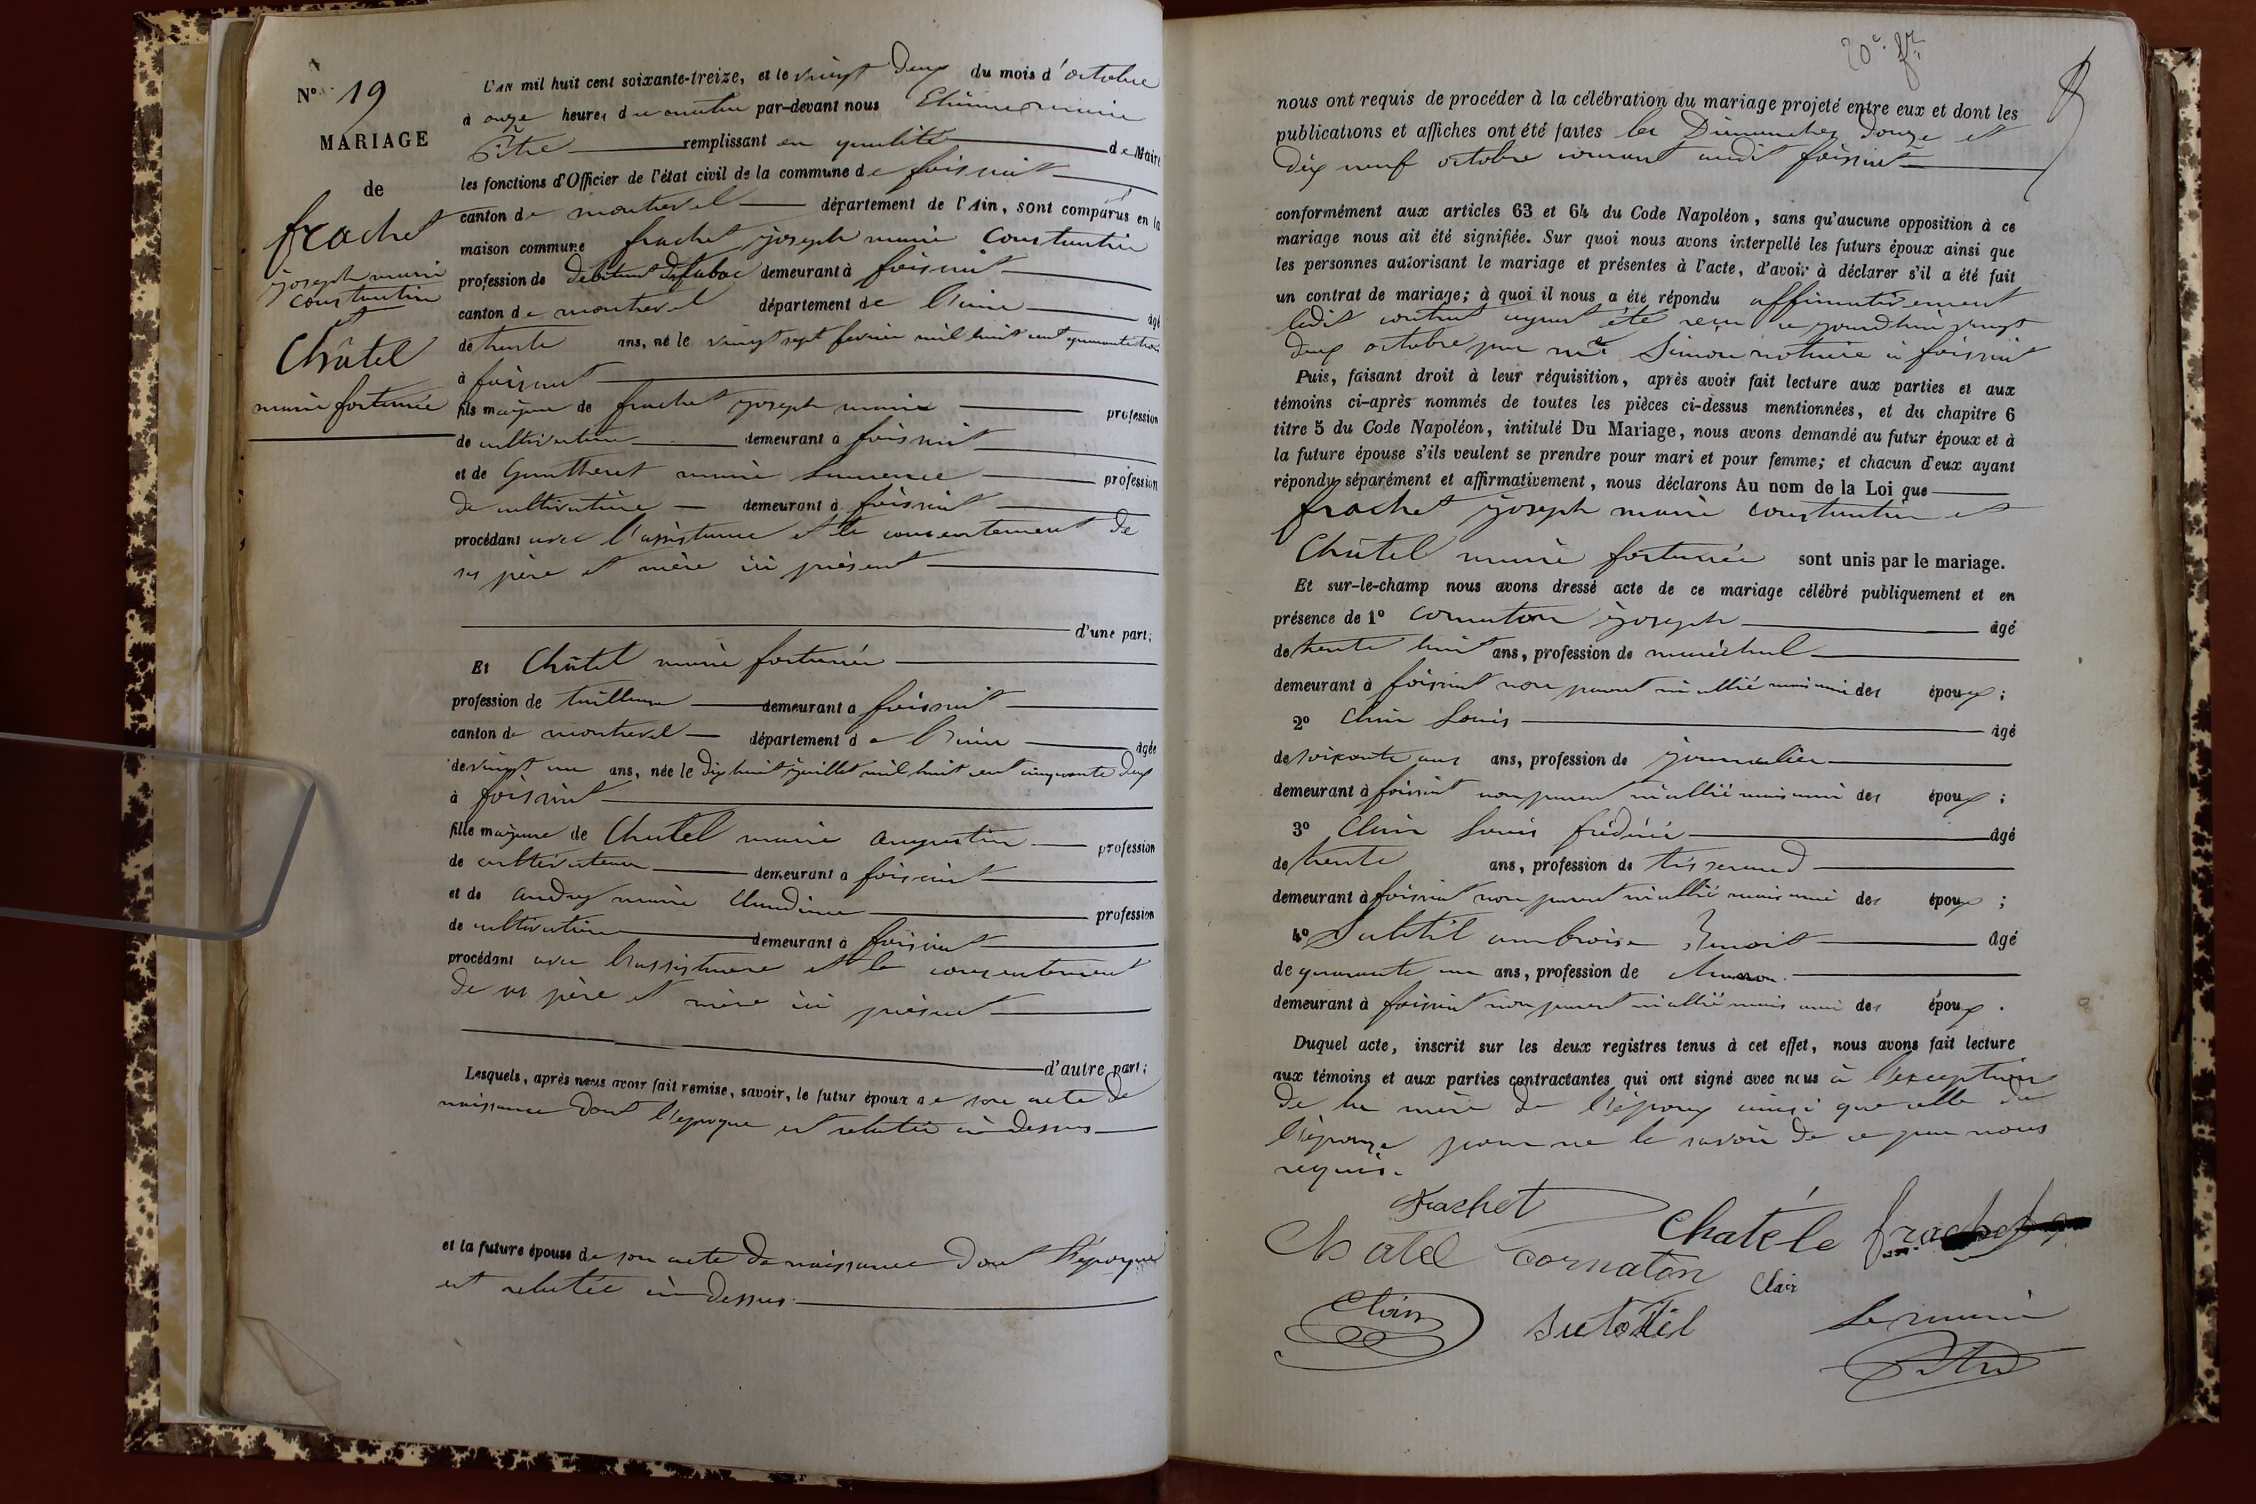 N° 19
MARIAGE
de
frachet
joseph marie
constantin
Et
Châtel
marie fortunée
L'an mil huit cent soixante-treize, et le vingt deux du mois d'octobre
à onze heures du matin par-devant nous Etienne marie
Pitre remplissant en qualité de Maire
les fonctions d'Officier de l'état civil de la commune de foissiat
canton de montrevel département de l'Ain, sont comparus en la
maison commune frachet joseph marie constantin
profession de débitant de tabac demeurant à foissiat
canton de montrevel département de l'ain âgé
de trente ans, né le vingt sept fevrier mil huit cent quarante trois
à foissiat
fils majeur de frachet joseph marie profession
de cultivateur demeurant à foissiat
et de Gautheret marie Laurence profession
de cultivatrice demeurant à foissiat
procédant avec l'assistance et le consentement de
ses père et mère ici présent
d'une part;
Et Châtel marie fortunée
profession de tailleuse demeurant à foissiat
canton de montrevel département de l'ain âgée
de vingt un ans, née le dix huit juillet mil huit cent cinquante deux
à foissiat
fille majeure de Chatel marie augustin profession
de cultivateur demeurant à foissiat
et de andrey marie Claudine profession
de cultivatrice demeurant à foissiat
procédant avec l'assistance et le consentement
de ses père et mère ici présent
d'autre part;
Lesquels, après nous avoir fait remise, savoir, le futur époux de son acte de
naissance dont l'époque est relatée ci dessus
et la future épouse de son acte de naissance dont l'époque
est relatée ci dessus
20e. ft
nous ont requis de procéder à la célébration du mariage projeté entre eux et dont les
publications et affiches ont été faites les Dimanches douze et
dix neuf octobre courant audit foissiat
conformément aux articles 63 et 64 du Code Napoléon, sans qu'aucune opposition à ce
mariage nous ait été signifiée. Sur quoi nous avons interpellé les futurs époux ainsi que
les personnes autorisant le mariage et présentes à l'acte, d'avoir à déclarer s'il a été fait
un contrat de mariage; à quoi il nous a été répondu affirmativement
ledit contrat ayant été reçu ce jourd'hui vingt
deux octobre par me Simon notaire à foissiat
Puis, faisant droit à leur réquisition, après avoir fait lecture aux parties et aux
témoins ci-après nommés de toutes les pièces ci-dessus mentionnées, et du chapitre 6
titre 5 du Code Napoléon, intitulé Du Mariage, nous avons demandé au futur époux et à
la future épouse s'ils veulent se prendre pour mari et pour femme; et chacun d'eux ayant
répondu séparément et affirmativement, nous déclarons Au nom de la Loi que
frachet joseph marie constantin et
Châtel marie fortunée sont unis par le mariage.
Et sur-le-champ nous avons dressé acte de ce mariage célébré publiquement et en
présence de 1° cornaton joseph âgé
de trente huit ans, profession de maréchal
demeurant à foissiat non parent ni allié mais ami des époux;
2° Clair Louis âgé
de soixante ans ans, profession de journalier
demeurant à foissiat non parent ni allié mais ami des époux;
3° Clair Louis frédéric âgé
de trente ans, profession de tisserand
demeurant à foissiat non parent ni allié mais ami des époux;
4° Subtil ambroise Benoit âgé
de quarante un ans, profession de
demeurant à foissiat non parent ni allié mais ami des époux.
Duquel acte, inscrit sur les deux registres tenus à cet effet, nous avons fait lecture
aux témoins et aux parties contractantes qui ont signé avec nous à l'exception
de la mère de l'époux ainsi que celle de
l'épouse pour ne le savoir de ce par nous
requis.
frachet
Chatel Cornaton Chatéle frachet
Clair
Clair Subtil Le maire
Pitre